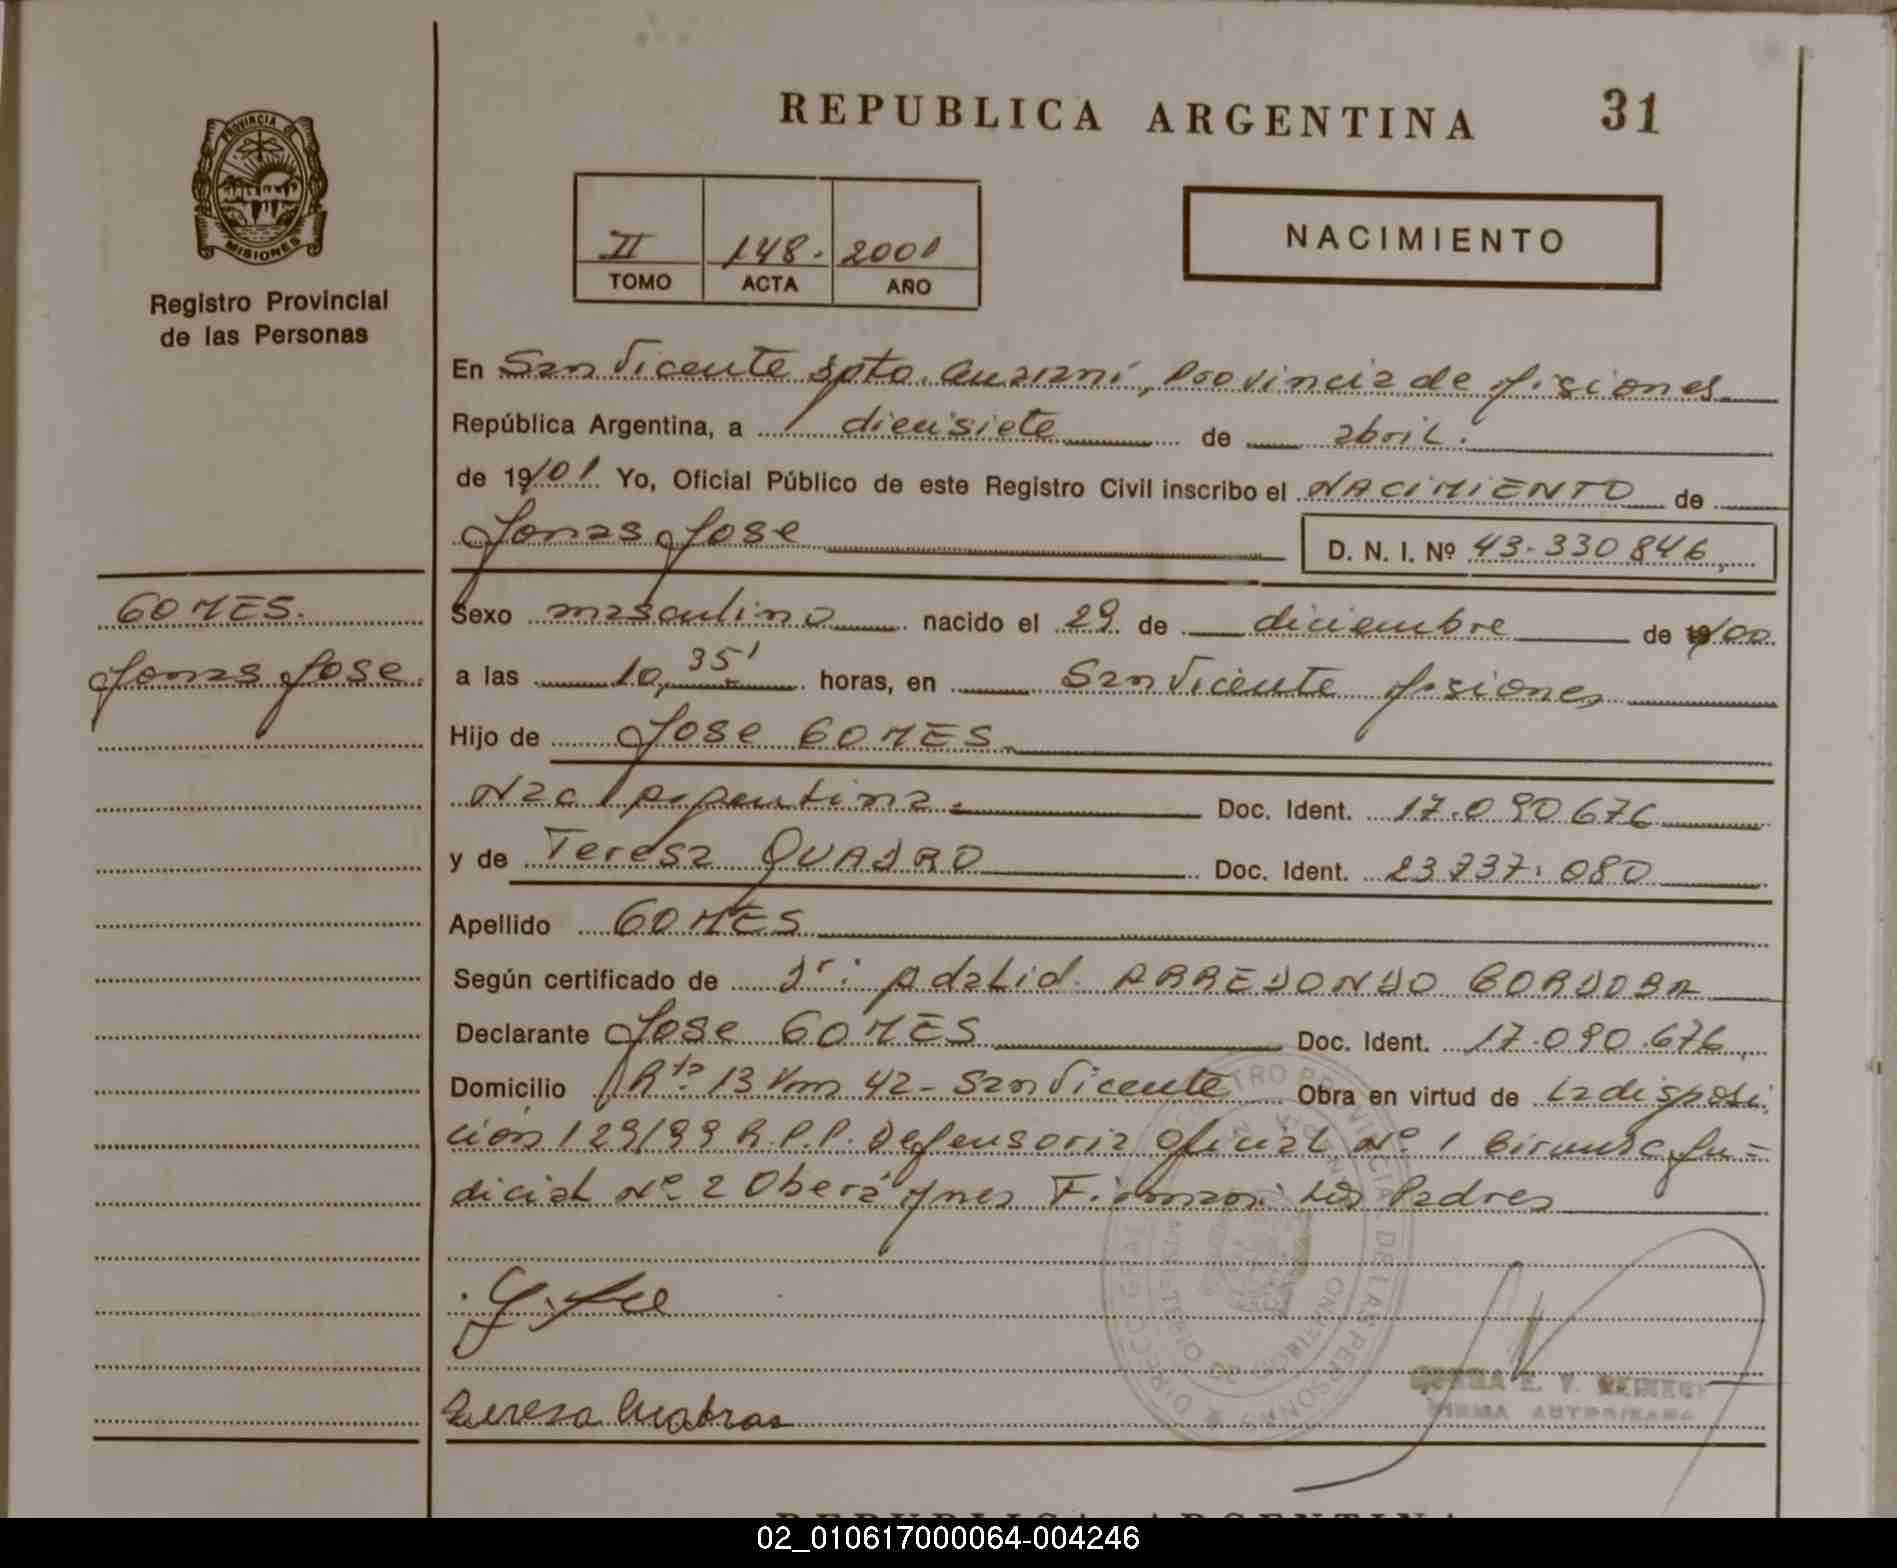 REPUBLICA ARGENTINA 31
PROVINCIA DE
MISIONES
Registro Provincial
de las Personas
II 148. 2001
TOMO ACTA AÑO
NACIMIENTO
En San Vicente Dpto. Guaraní, Provincia de Misiones
República Argentina, a diecisiete de abril.
de 19/01 Yo, Oficial Público de este Registro Civil inscribo el NACIMIENTO de
Jonas Jose D. N. I. Nº 43-330846
GOMES.
Jonas Jose
Sexo masculino nacido el 29 de diciembre de 19/00
a las 10,35' horas, en San Vicente Misiones
Hijo de Jose GOMES
Nac Argentina. Doc. Ident. 17.090676
y de Teresa QUADRO Doc. Ident. 23.737.080
Apellido GOMES
Según certificado de Dr: Adalid. ARREDONDO CORDOBA
Declarante Jose GOMES Doc. Ident. 17.090.676
Domicilio Rta. 13 Km 42 - San Vicente Obra en virtud de La disposi
ción 129/99 R.P.P. Defensoria Oficial Nº 1 Circunsc. Ju=
dicial Nº 2 Oberá Mnes Firman: Los Padres
Teresa Cuadros
DIRECC. GRAL. REGISTRO PROVINCIAL DE LAS PERSONAS
MINISTERIO DE GOBIERNO
FIRMA AUTORIZADA
REPUBLICA ARGENTINA
02_010617000064-004246